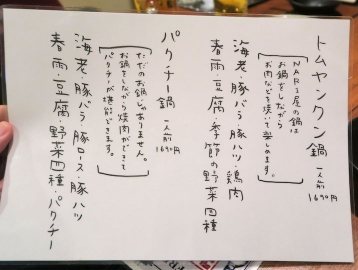 トムヤンクン鍋 一人前 1690円
NARI屋の鍋は
お鍋をしながら
お肉などを焼いて楽しめます。
海老・豚バラ・豚ハツ・鶏肉
春雨・豆腐・季節の野菜四種
パクチー鍋 一人前 1690円
ただのお鍋じゃありません。
お鍋をしながら焼肉ができて
パクチーが堪能できます。
海老・豚バラ・豚ロース・豚ハツ
春雨・豆腐・野菜四種・パクチー